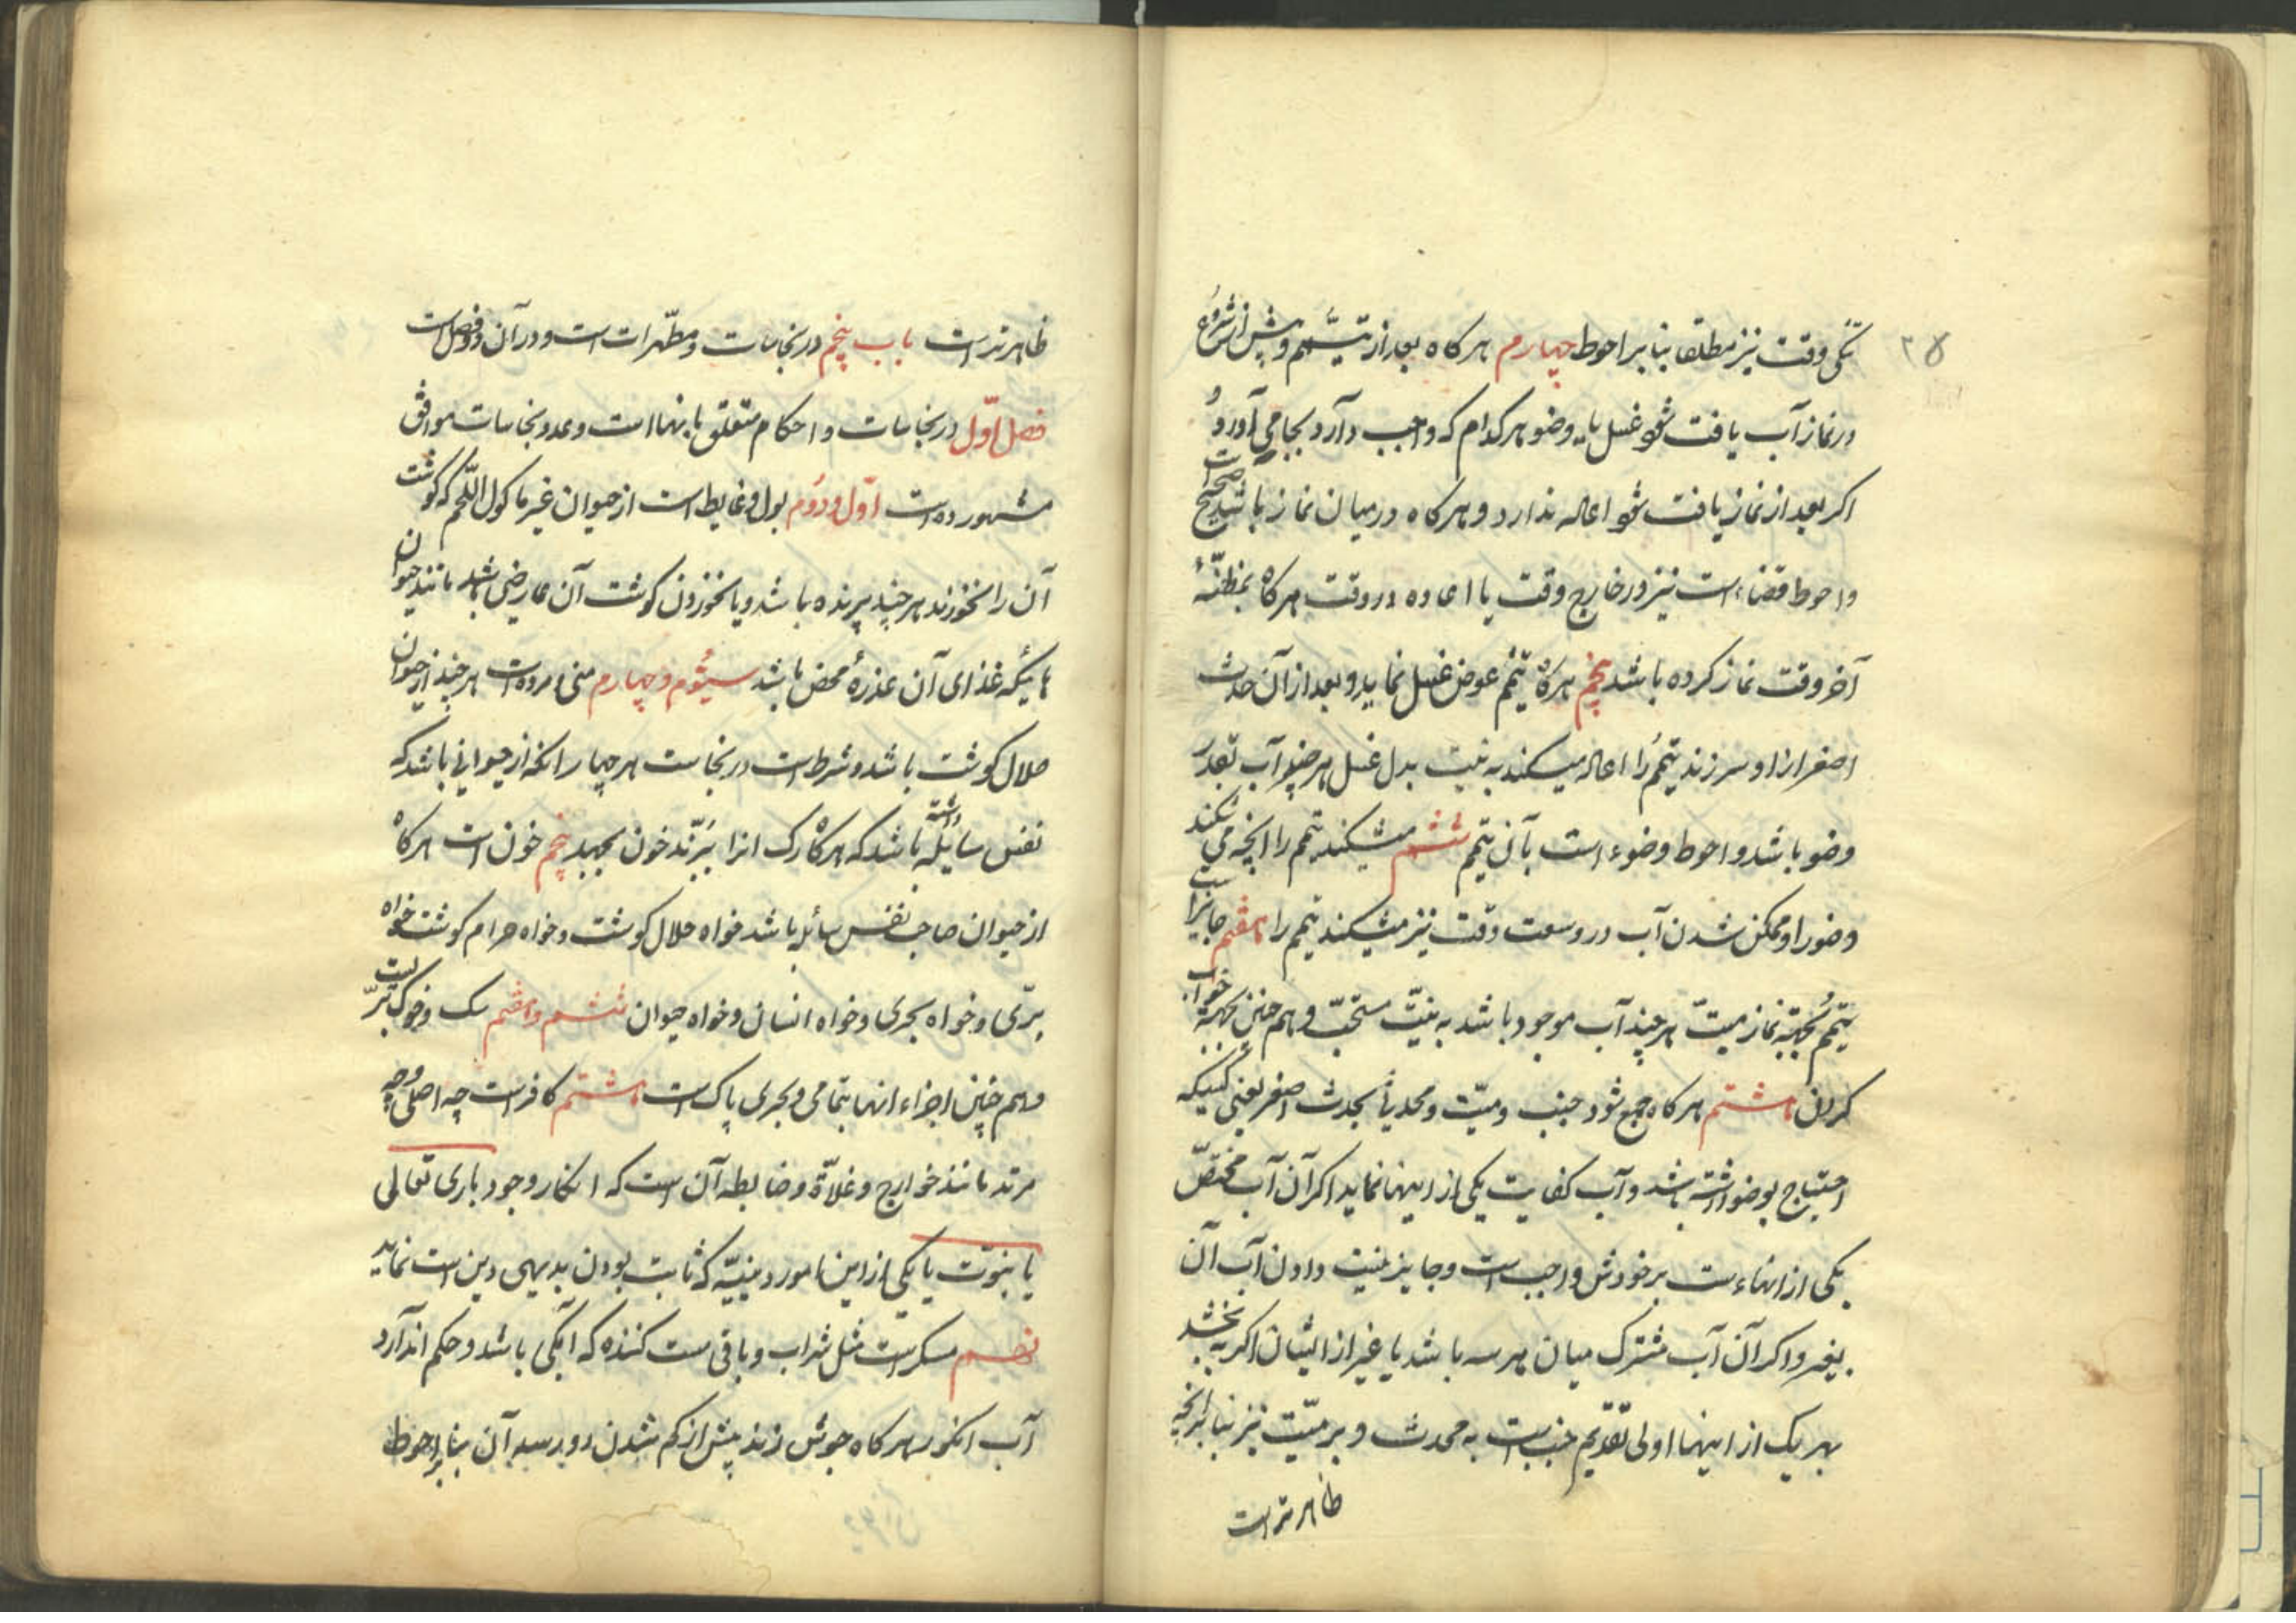 ۳۵
تنگی وقت نیز مطلقا بنا بر احوط چهارم هرگاه بعد از تیمّم و پیش از شروع
در نماز آب یافت شود غسل یا وضو هرکدام که واجب دارد بجا می آورد و
اگر بعد از نماز یافت شود اعاله ندارد و هرگاه در میان نماز باشد صحیح است
و احوط قضاء است نیز در خارج وقت یا اعاده در وقت هرگاه بمظنّهٔ
آخر وقت نماز کرده باشد پنجم هرگاه تیمم عوض غسل نماید و بعد از آن حدث
اصغر از او سر زند تیمم را اعاله میکند به نیت بدل غسل هر چند آب بقدر
وضو باشد و احوط وضوء است با آن تیمم ششم میشکند تیمم را آنچه می شکند
وضو را و ممکن شدن آب در وسعت وقت نیز میشکند تیمم را هفتم جایز است
تیمم بجهة نماز میت هر چند آب موجود باشد به نیّت مستحبّ و هم چنین بجهة خواب
کردن هشتم هرگاه جمع شود جنب و میّت و محدث بحدث اصغر یعنی کسیکه
احتیاج بوضو داشته باشد و آب کفایت یکی از اینها نماید اگر آن آب مختصّ
یکی از انهاءست بر خودش واجب است و جایز نیست دادن آب آن
بغیر و اگر آن آب مشترک میان هر سه باشد یا غیر از ایشان اگر به بخشد
بهر یک از اینها اولی تقدیم جنب است به محدث و بر میّت نیز بنا بر آنچه
ظاهرتر است
ظاهرتر است باب پنجم در نجاسات و مطهّرات است و در آن دو فصل است
فصل اوّل در نجاسات و احکام متعلق باینها است و عدد نجاسات موافق
مشهور ده است اوّل و دوم بول و غایط است از حیوان غیر ماکول اللّحم که گوشت
آن را نخورند هر چند پرنده باشد و یا نخوردن گوشت آن عارضی باشد مانند حیوان
هائیکه غذای آن عذرهٔ محض باشد سیّوم و چهارم منی و مرده است هر چند از حیوان
حلال گوشت باشد و شرط است در نجاست هر چهار انکه از حیوانی باشد که
نفس سائله داشته باشد که هرگاه رک انرا ببرّند خون بجهد پنجم خون است هرگاه
از حیوان صاحب نفس سائله باشد خواه حلال گوشت و خواه حرام گوشت خواه
برّی و خواه بحری و خواه انسان و خواه حیوان ششم و هفتم سک و خوک برّیست
و هم چنین اجزاء انها بتمامی و بحری پاک است هشتم کافر است چه اصلی و چه
مرتد مانند خوارج و غلاّة و ضابطه آن است که انکار وجود باری تعالی
یا نبوّت یا یکی از این امور دینیّه که ثابت بودن بدیهی دین است نماید
نهم مسکر است مثل شراب و باقی مست کننده که آبکی باشد و حکم اندارد
آب انکور هرگاه جوش زند پیش از کم شدن دو بر سه آن بنا بر احوط